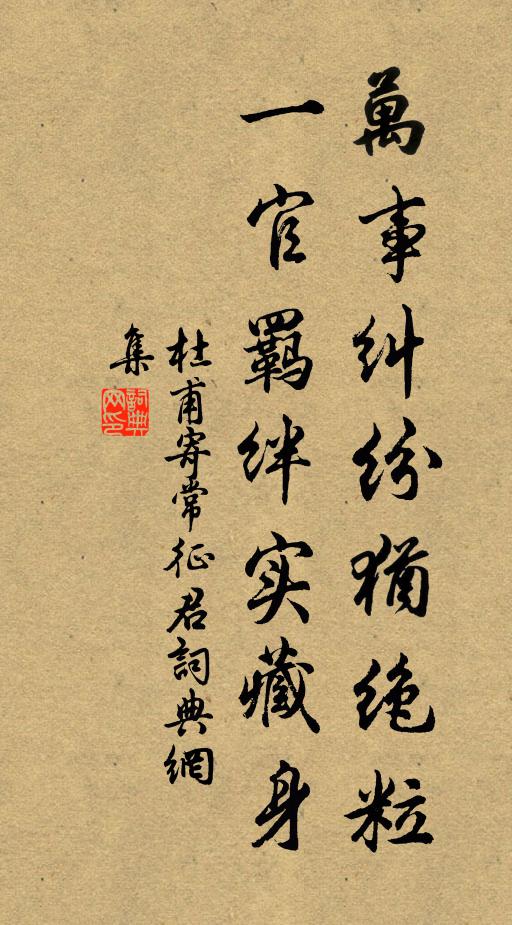 萬事糾纷猶绝粒
一官羈绊实藏身
杜甫寄常征君詞典網
集
詞典網印